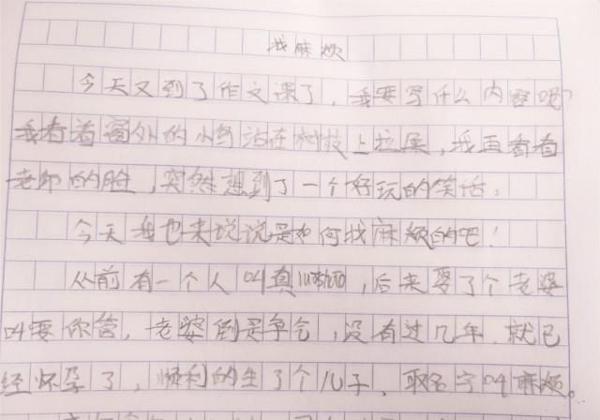 找麻烦
今天又到了作文课了，我要写什么内容呢？
我看着窗外的小鸟站在树枝上拉屎，我再看看
老师的脸，突然想到了一个好玩的笑话。
今天我也来说说是如何找麻烦的吧！
从前有一个人叫真，后来娶了个老婆
叫要你管，老婆倒是争气，没有过几年，就已
经怀孕了，顺利的生了个儿子，取名字叫麻烦。